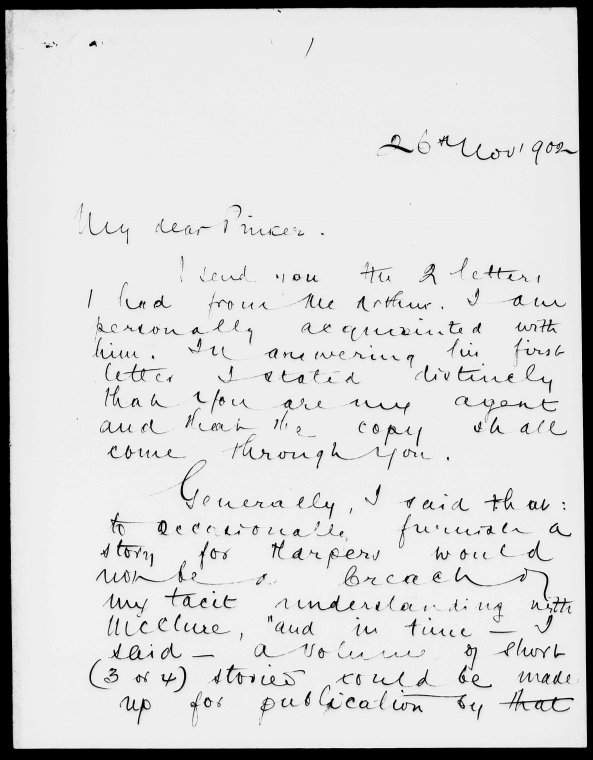 1
26th Nov' 1902
My dear Pinker.
I send you the 2 letters
I had from McArthur. I am
personally acquainted with
him. In answering his first
letter I stated distinctly
that you are my agent
and that the copy shall
come through you.
Generally, I said that:
to occasionally furnish a
story for Harpers would
not be a breach of
my tacit understanding with
McClure, "and in time – I
said – a volume of short
(3 or 4) stories could be made
up for publication by that